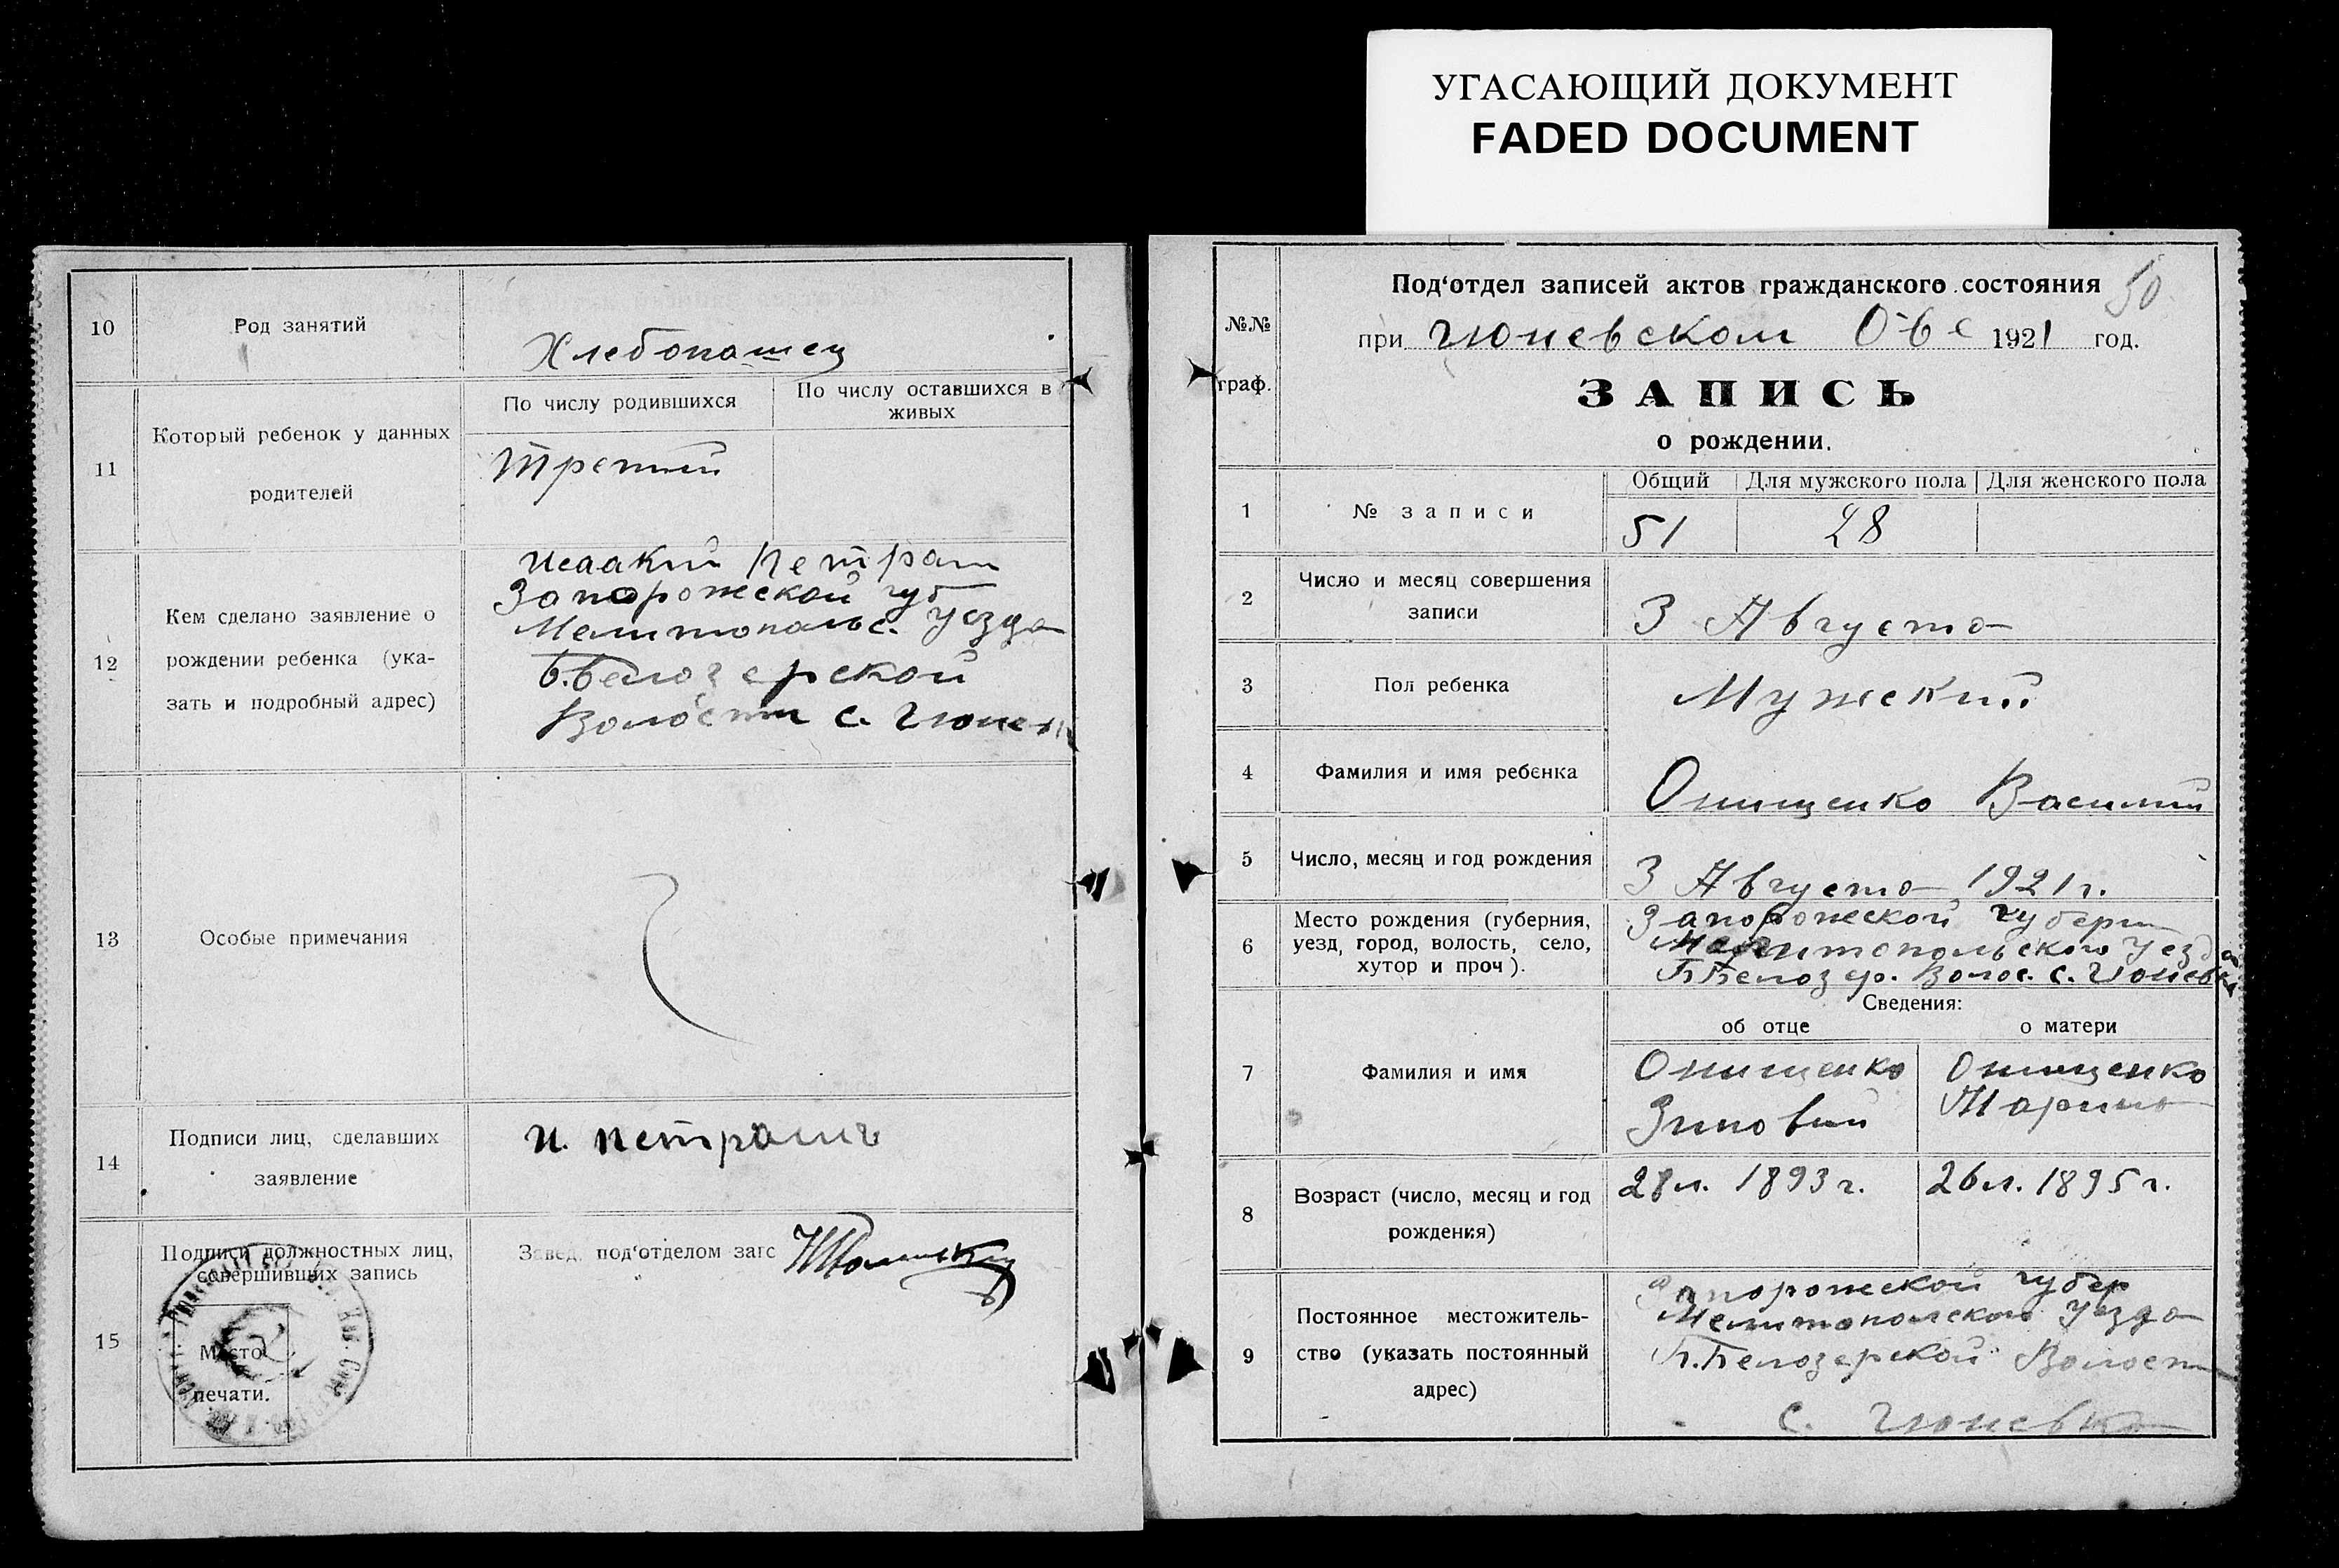 УГАСАЮЩИЙ ДОКУМЕНТ
FADED DOCUMENT
10
Род занятий
Хлебопашец
11
Который ребенок у данных
родителей
По числу родившихся
По числу оставшихся в
живых
Третий
12
Кем сделано заявление о
рождении ребенка (ука-
зать и подробный адрес)
Исаакий Петраш
Запорожской губ
Мелитопольс. Уезда
Б.Белозерской
Волости с. Гюнев
13
Особые примечания
14
Подписи лиц, сделавших
заявление
И. Петрашъ
15
Подписи должностных лиц,
совершивших запись
Место
печати.
Завед. под‘отделом загс
50
№№
граф.
Под‘отдел записей актов гражданского состояния
при Гюневском О-ве 1921 год.
ЗАПИСЬ
о рождении.
1
№ записи
Общий
Для мужского пола
Для женского пола
51
28
2
Число и месяц совершения
записи
3 Августа
3
Пол ребенка
Мужский
4
Фамилия и имя ребенка
Онищенко Василий
5
Число, месяц и год рождения
3 Августа 1921 г.
6
Место рождения (губерния,
уезд, город, волость, село,
хутор и проч).
Запорожской губерн
Мелитопольского Уезда
Б Белозер. Волос. с. Гюневка
Сведения:
об отце
о матери
7
Фамилия и имя
Онищенко
Зиновий
Онищенко
Марина
8
Возраст (число, месяц и год
рождения)
28 л. 1893 г.
26 л. 1895 г.
9
Постоянное местожитель-
ство (указать постоянный
адрес)
Запорожской губер
Мелитополского Уезда
Б.Белозерской Волости
с. Гюневка